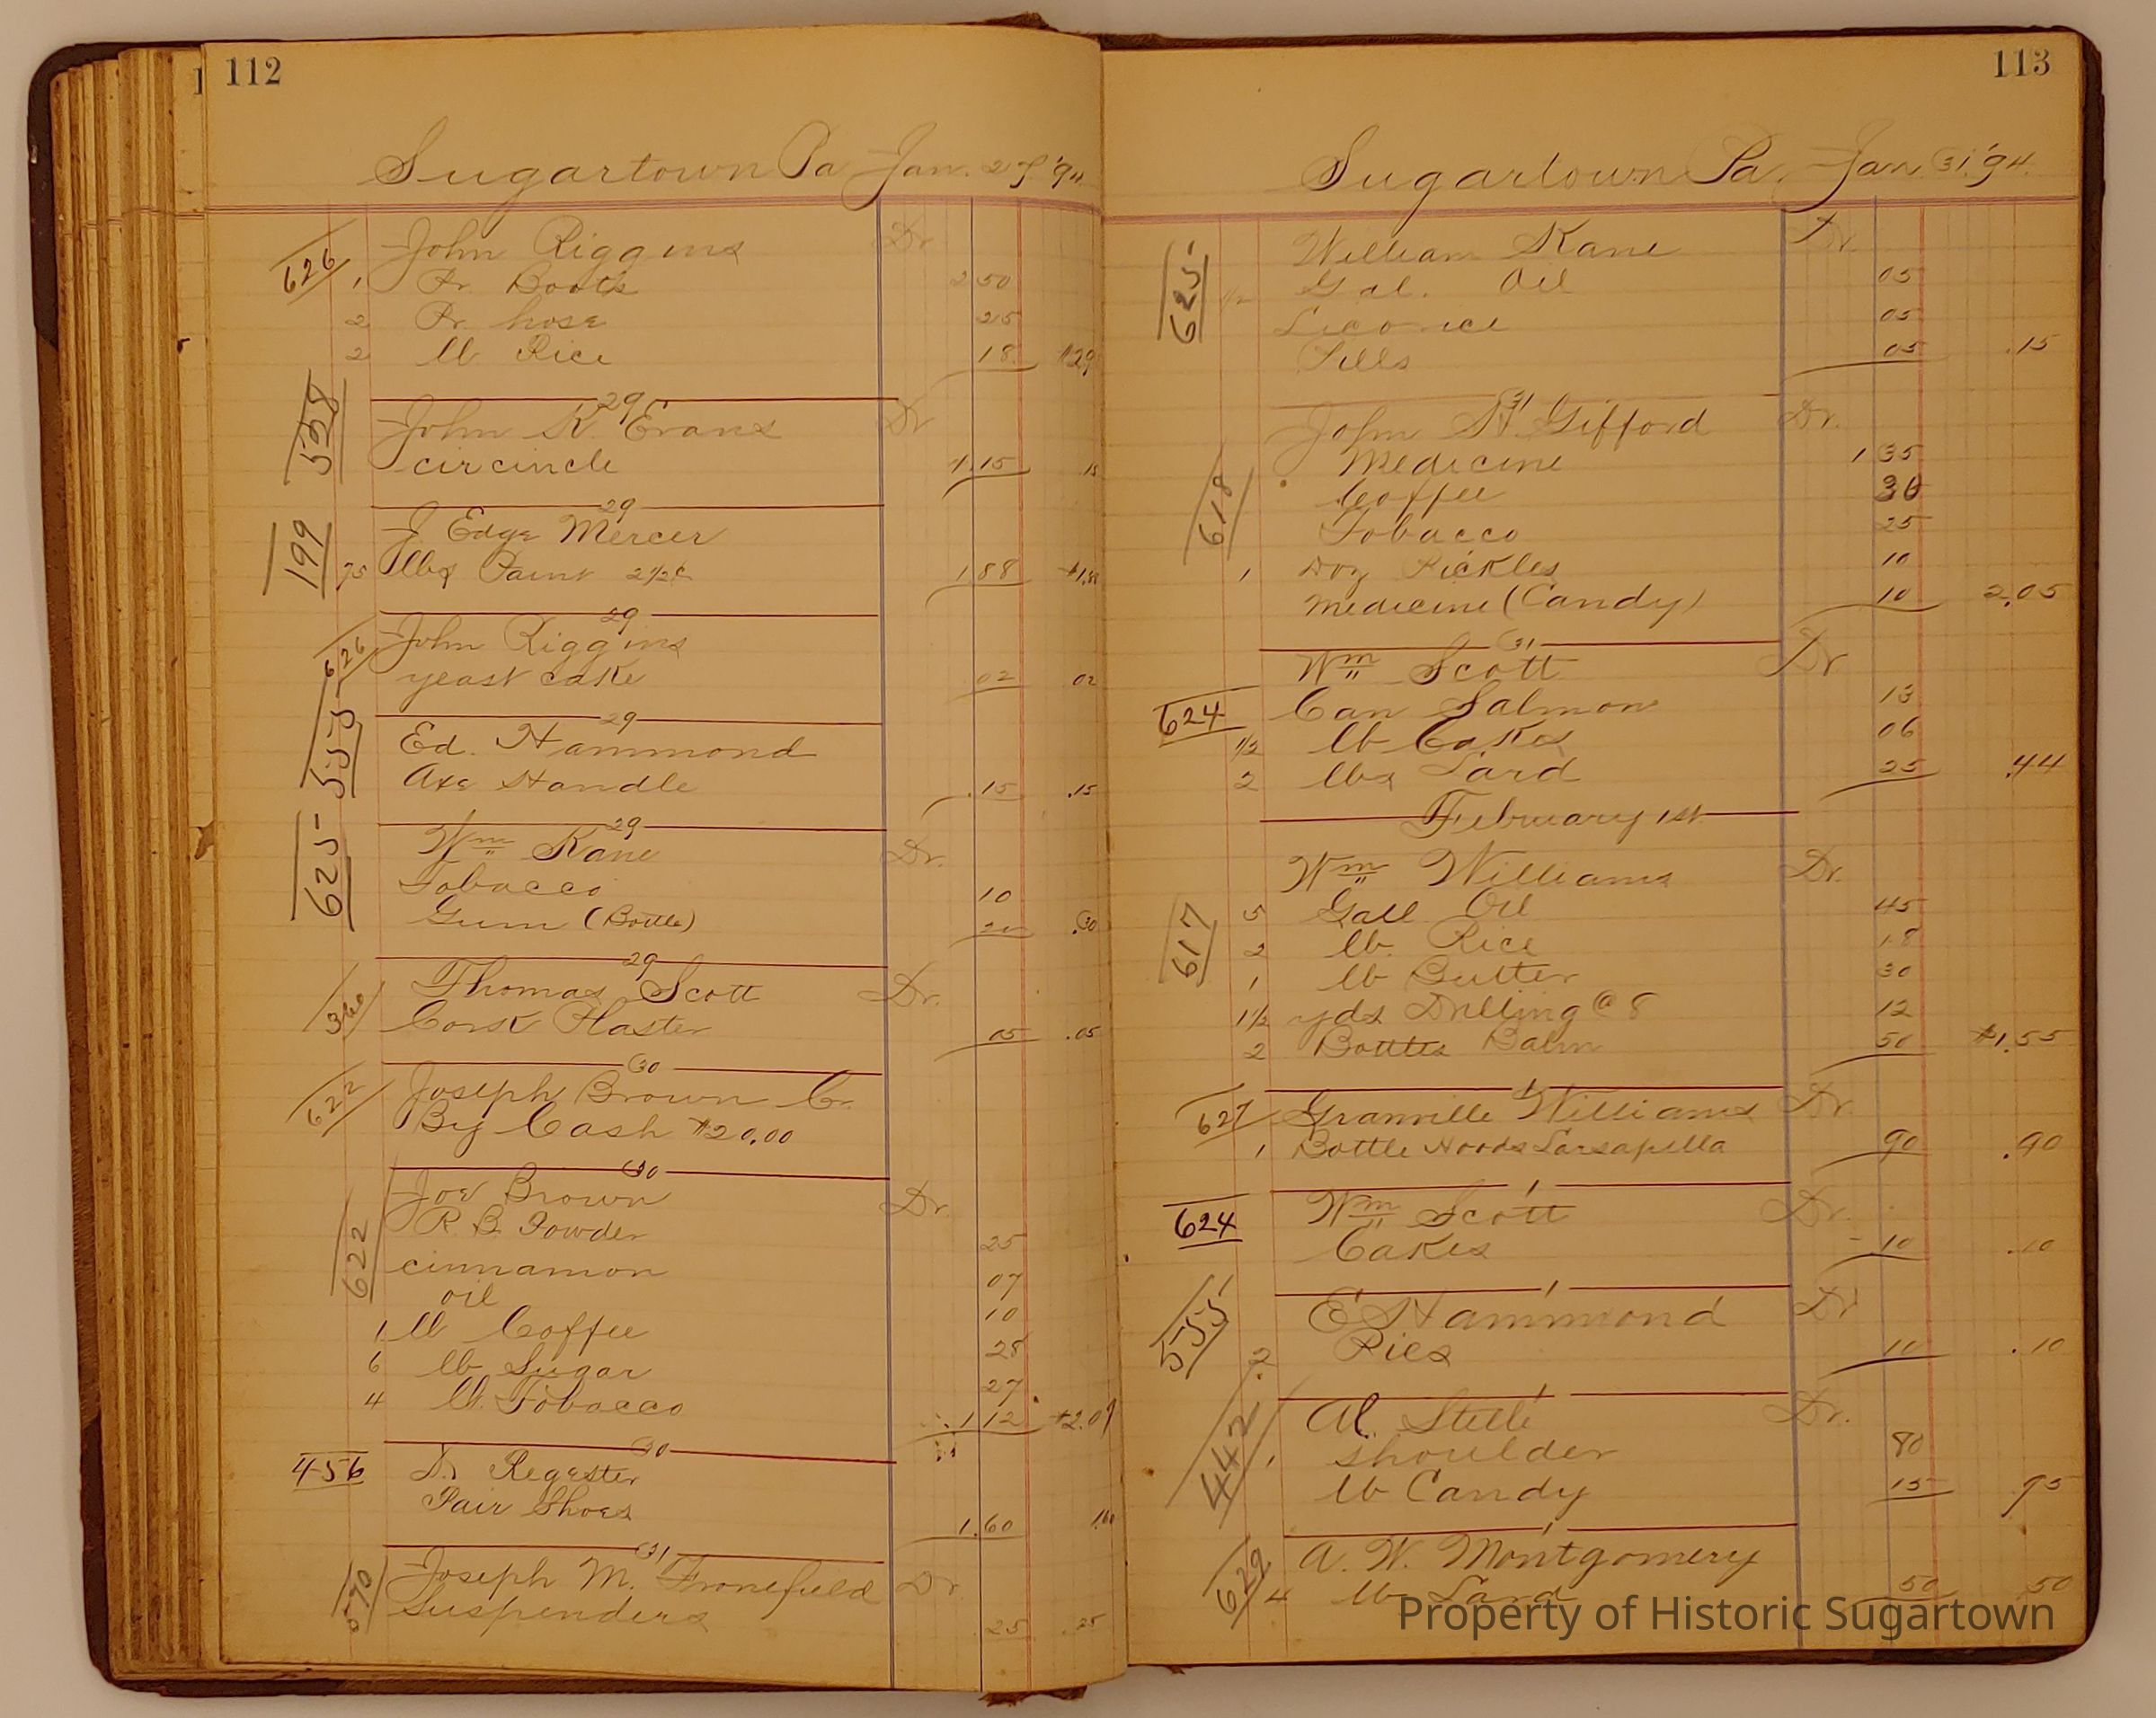 112
Sugartown Pa Jan. 29 '94
626 John Riggins Dr
1 Pr. Boots 2 50
2 Pr. hose 25
2 lb Rice 18 $2.9
29
John K. Evans Dr
circincle 1.15
29
199 J Edge Mercer
75 lbs Paint 2 1/2c 1.88 $1.88
29
626 John Riggins
yeast cake 02 02
29
555 Ed. Hammond
Axe Handle .15 .15
29
625 Wm Kane Dr.
Tobacco 10
Gum (Bottle) 20 .30
29
360 Thomas Scott Dr.
Corn Plaster 05 .05
30
622 Joseph Brown Cr.
By Cash $20.00
30
622 Joe Brown Dr
R. B. Powder 25
cinnamon 07
oil 10
1 lb Coffee 28
6 lb Sugar 27
4 lb Tobacco 1 12 $2.09
30
456 Dr Regester
Pair Shoes 1.60 1.60
31
570 Joseph M. Fronefield Dr
Suspenders 25 .25
113
Sugartown Pa. Jan 31. '94.
625 William Kane Dr.
1/2 Gal. Oil 05
Licorice 05
Pills 05 .15
31
618 John H. Gifford Dr.
Medicine 1 35
Coffee 30
Tobacco 25
1 Doz Pickles 10
Medicine (Candy) 10 2.05
31
Wm Scott Dr
624 Can Salmon 13
1/2 lb Cakes 06
2 lbs Lard 25 .44
February 1st
Wm Williams Dr.
617 5 Gall Oil 45
2 lb. Rice 18
1 lb Butter 30
1 1/2 yds Drilling @ 8 12
2 Bottles Balm 50 $1.55
1
627 Granville Williams Dr.
1 Bottle Hoods Sarsapella 90 .90
1
624 Wm Scott Dr.
Cakes 10 .10
1
555 E Hammond Dr
2 Pies 10 .10
1
442 Al. Steele Dr.
1 shoulder 80
lb Candy 15 .95
1
629 A. W. Montgomery
4 lb Lard 50 .50
Property of Historic Sugartown